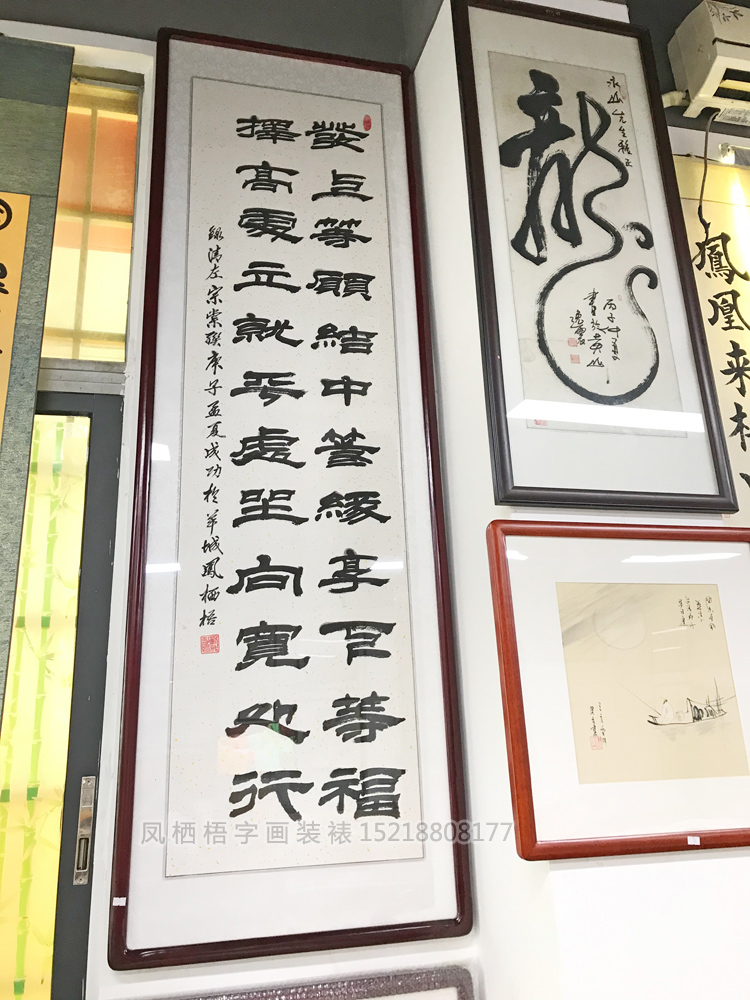 發上等願結中等緣享下等福
擇高處立就平處坐向寬處行
錄清左宗棠聯庚子孟夏成功於羊城鳳栖梧
龍
先生雅正
丙子
鳳凰来
凤栖梧字画装裱 15218808177